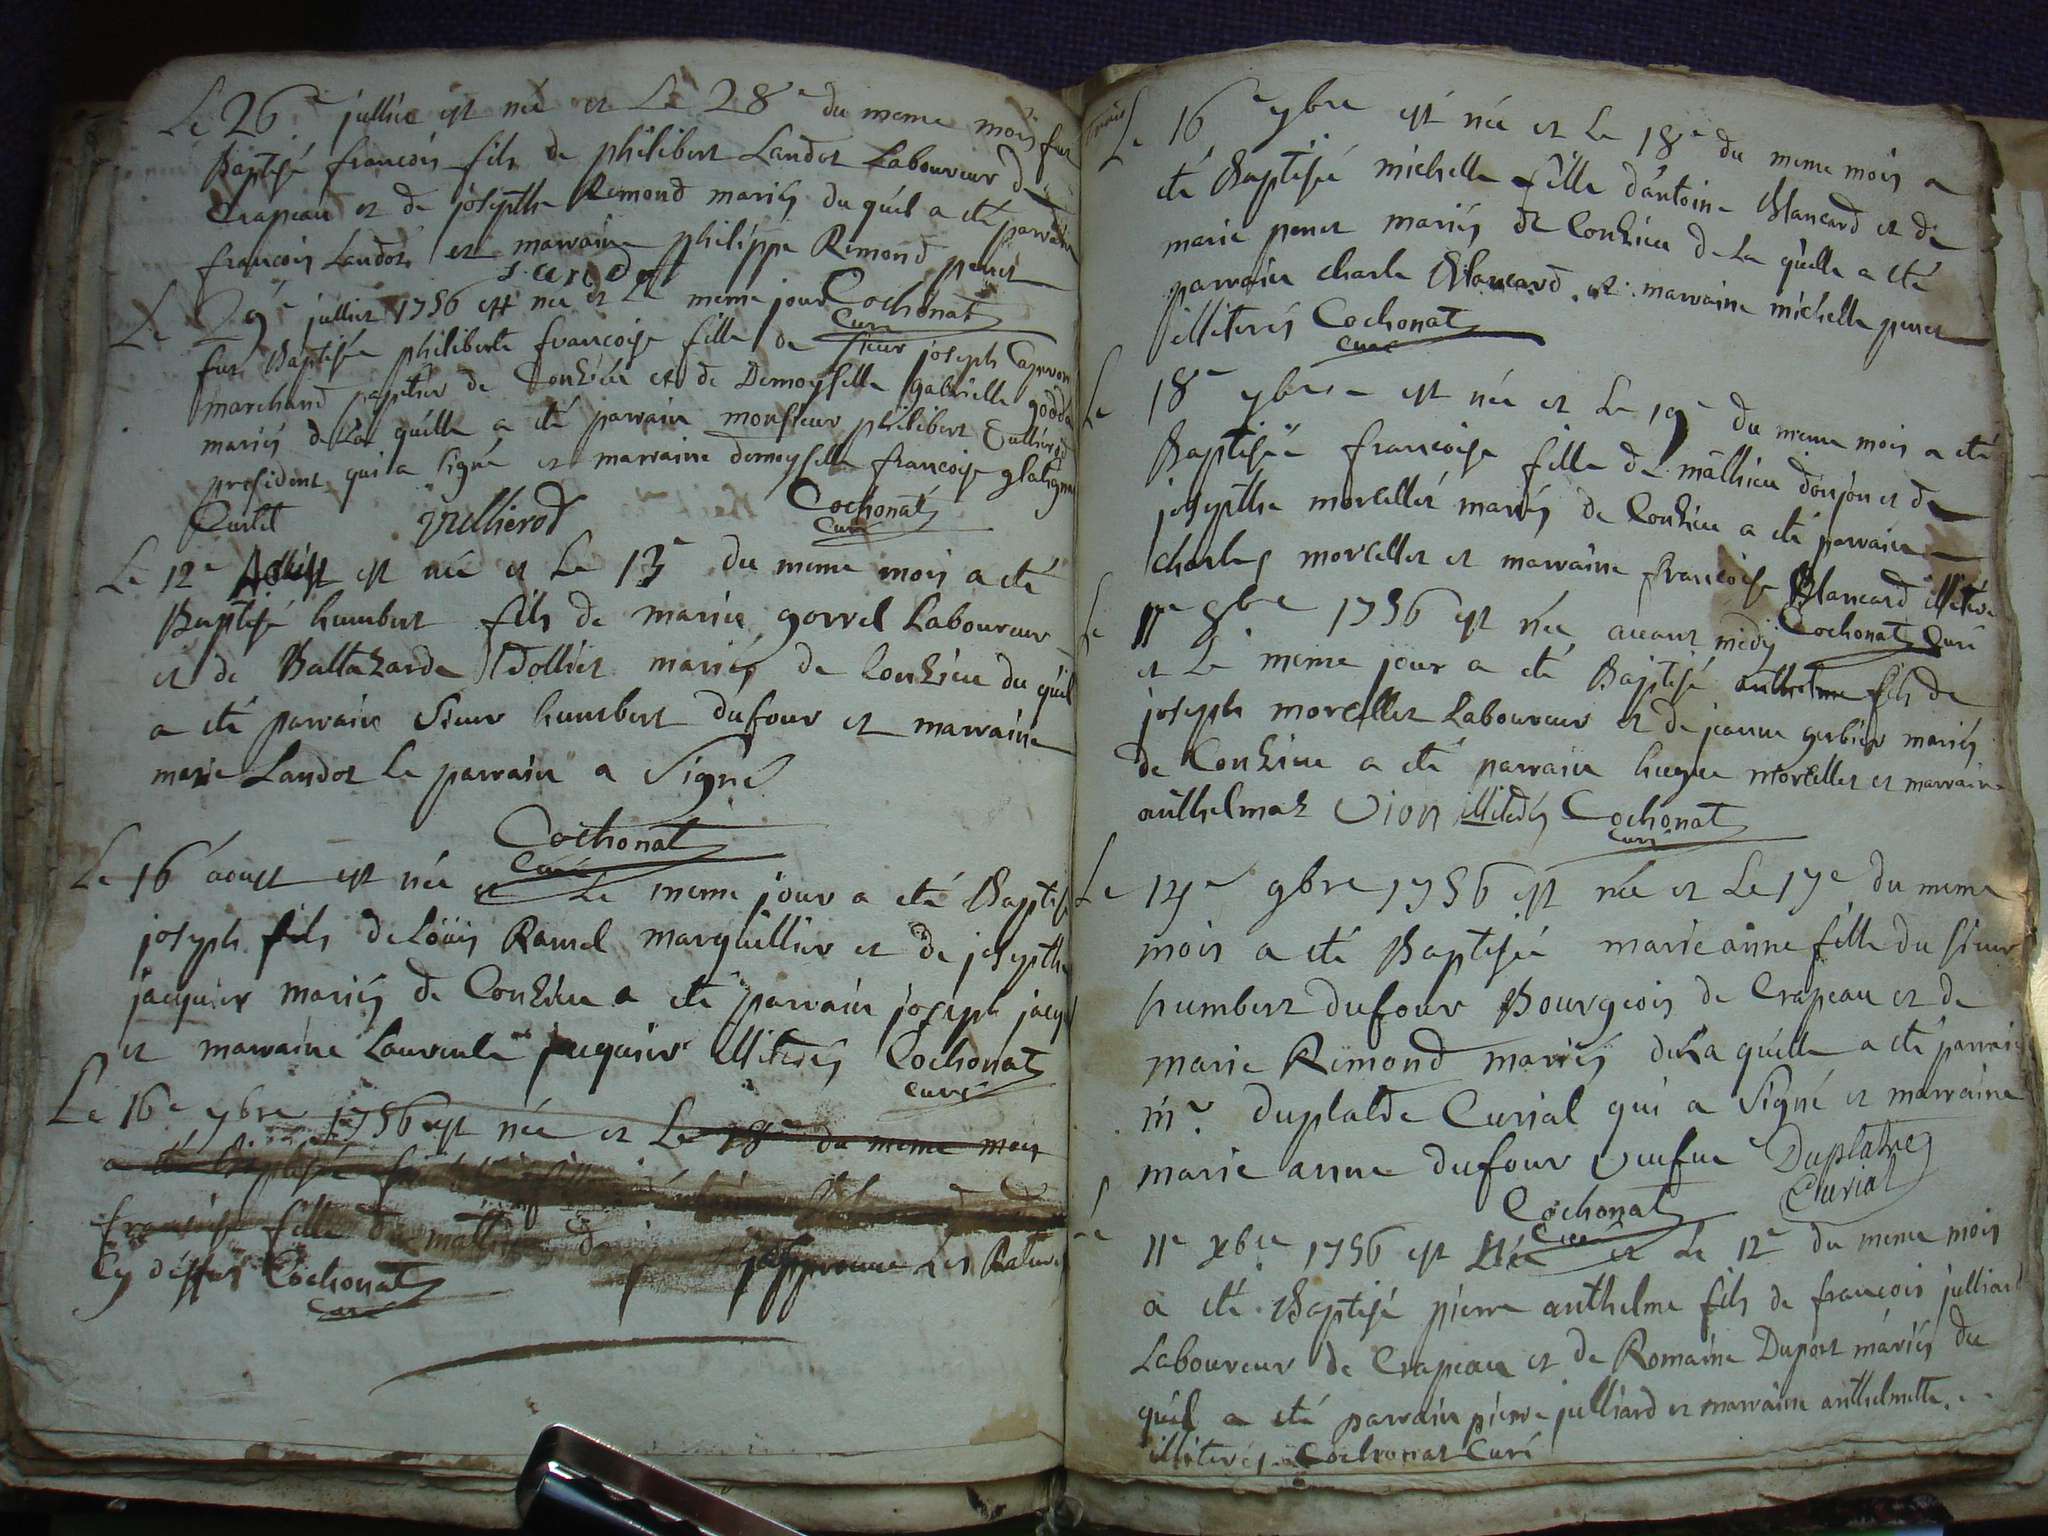 Le 26e jullie est néé et Le 28e du meme mois fut
Baptisé francois fils de philibert Landot Laboureur de
Crapeau et de josepthe Remond mariés du quél a eté parrain
francois Landot et marraine philippe Remond penet
Cochonat
Curé
Le 29e juillet 1756 est neé et Le meme jour
fut Baptisée philiberte francoise fille de sieur joseph
marchand papetier de Conzieu et de Demoyselle gabrielle
mariés de La quélle a eté parrain monsieur philibert Cullierod
president qui a signé et marraine demoyselle francoise
Curlit Cullierod Cochonat
Curé
Le 12e Aoust est néé et Le 13e du meme mois a eté
Baptisé humbert fils de marin gorrel Laboureur
et de Baltazarde Dollier mariés de Conzieu du quél
a eté parrain Sieur humbert dufour et marraine
marie Landot Le parrain a Signé
Cochonat
Curé
Le 16 aoust est néé et Le meme jour a eté Baptisé
joseph fils de Loüis Ramel marguillier et de josepthe
jacquier mariés de Conzieu a eté parrain joseph
et marraine Laurente jacquier illiterés Cochonat
Curé
Le 16e 7bre 1756 est néé et Le 18e du meme mois
a eté Baptisée
francoise fille de
japprouve Les Ratures
Cy déssus Cochonat
Curé
Le 16e 7bre est néé et Le 18e du meme mois a
eté Baptisée michelle fille d'antoine Blancard et de
marie penet mariés de Conzieu de La quélle a eté
parrain charle Blancard et marraine michelle penet
illiterés Cochonat
Curé
Le 18e 7bre est néé et Le 19e du meme mois a eté
Baptiséé francoise fille de mathieu donjon et de
josepthe morcellet mariés de Conzieu a eté parrain
charles morcellet et marraine francoise Blancard
Cochonat Curé
Le 11e 8bre 1756 est néé avant midy
et Le meme jour a eté Baptisé anthelme fils de
joseph morcellet Laboureur et de jeanne gerbier mariés
de Conzieu a eté parrain hugue morcellet et marraine
anthelmaz Vion illiterés Cochonat
Curé
Le 14e 9bre 1756 est néé et Le 17e du meme
mois a eté Baptisée marie anne fille du sieur
humbert dufour Bourgeois de Crapeau et de
marie Remond mariés de La quélle a eté parrain
mr. duplatre Curial qui a Signé et marraine
marie anne dufour veufue Duplatre
Curial
Cochonat
Curé
Le 11e xbre 1756 est Néé et Le 12e du meme mois
a eté Baptisé pierre anthelme fils de francois julliard
Laboureur de Crapeau et de Romaine Duport mariés du
quél a eté parrain pierre julliard et marraine anthelmette
illiterés Cochonat Curé